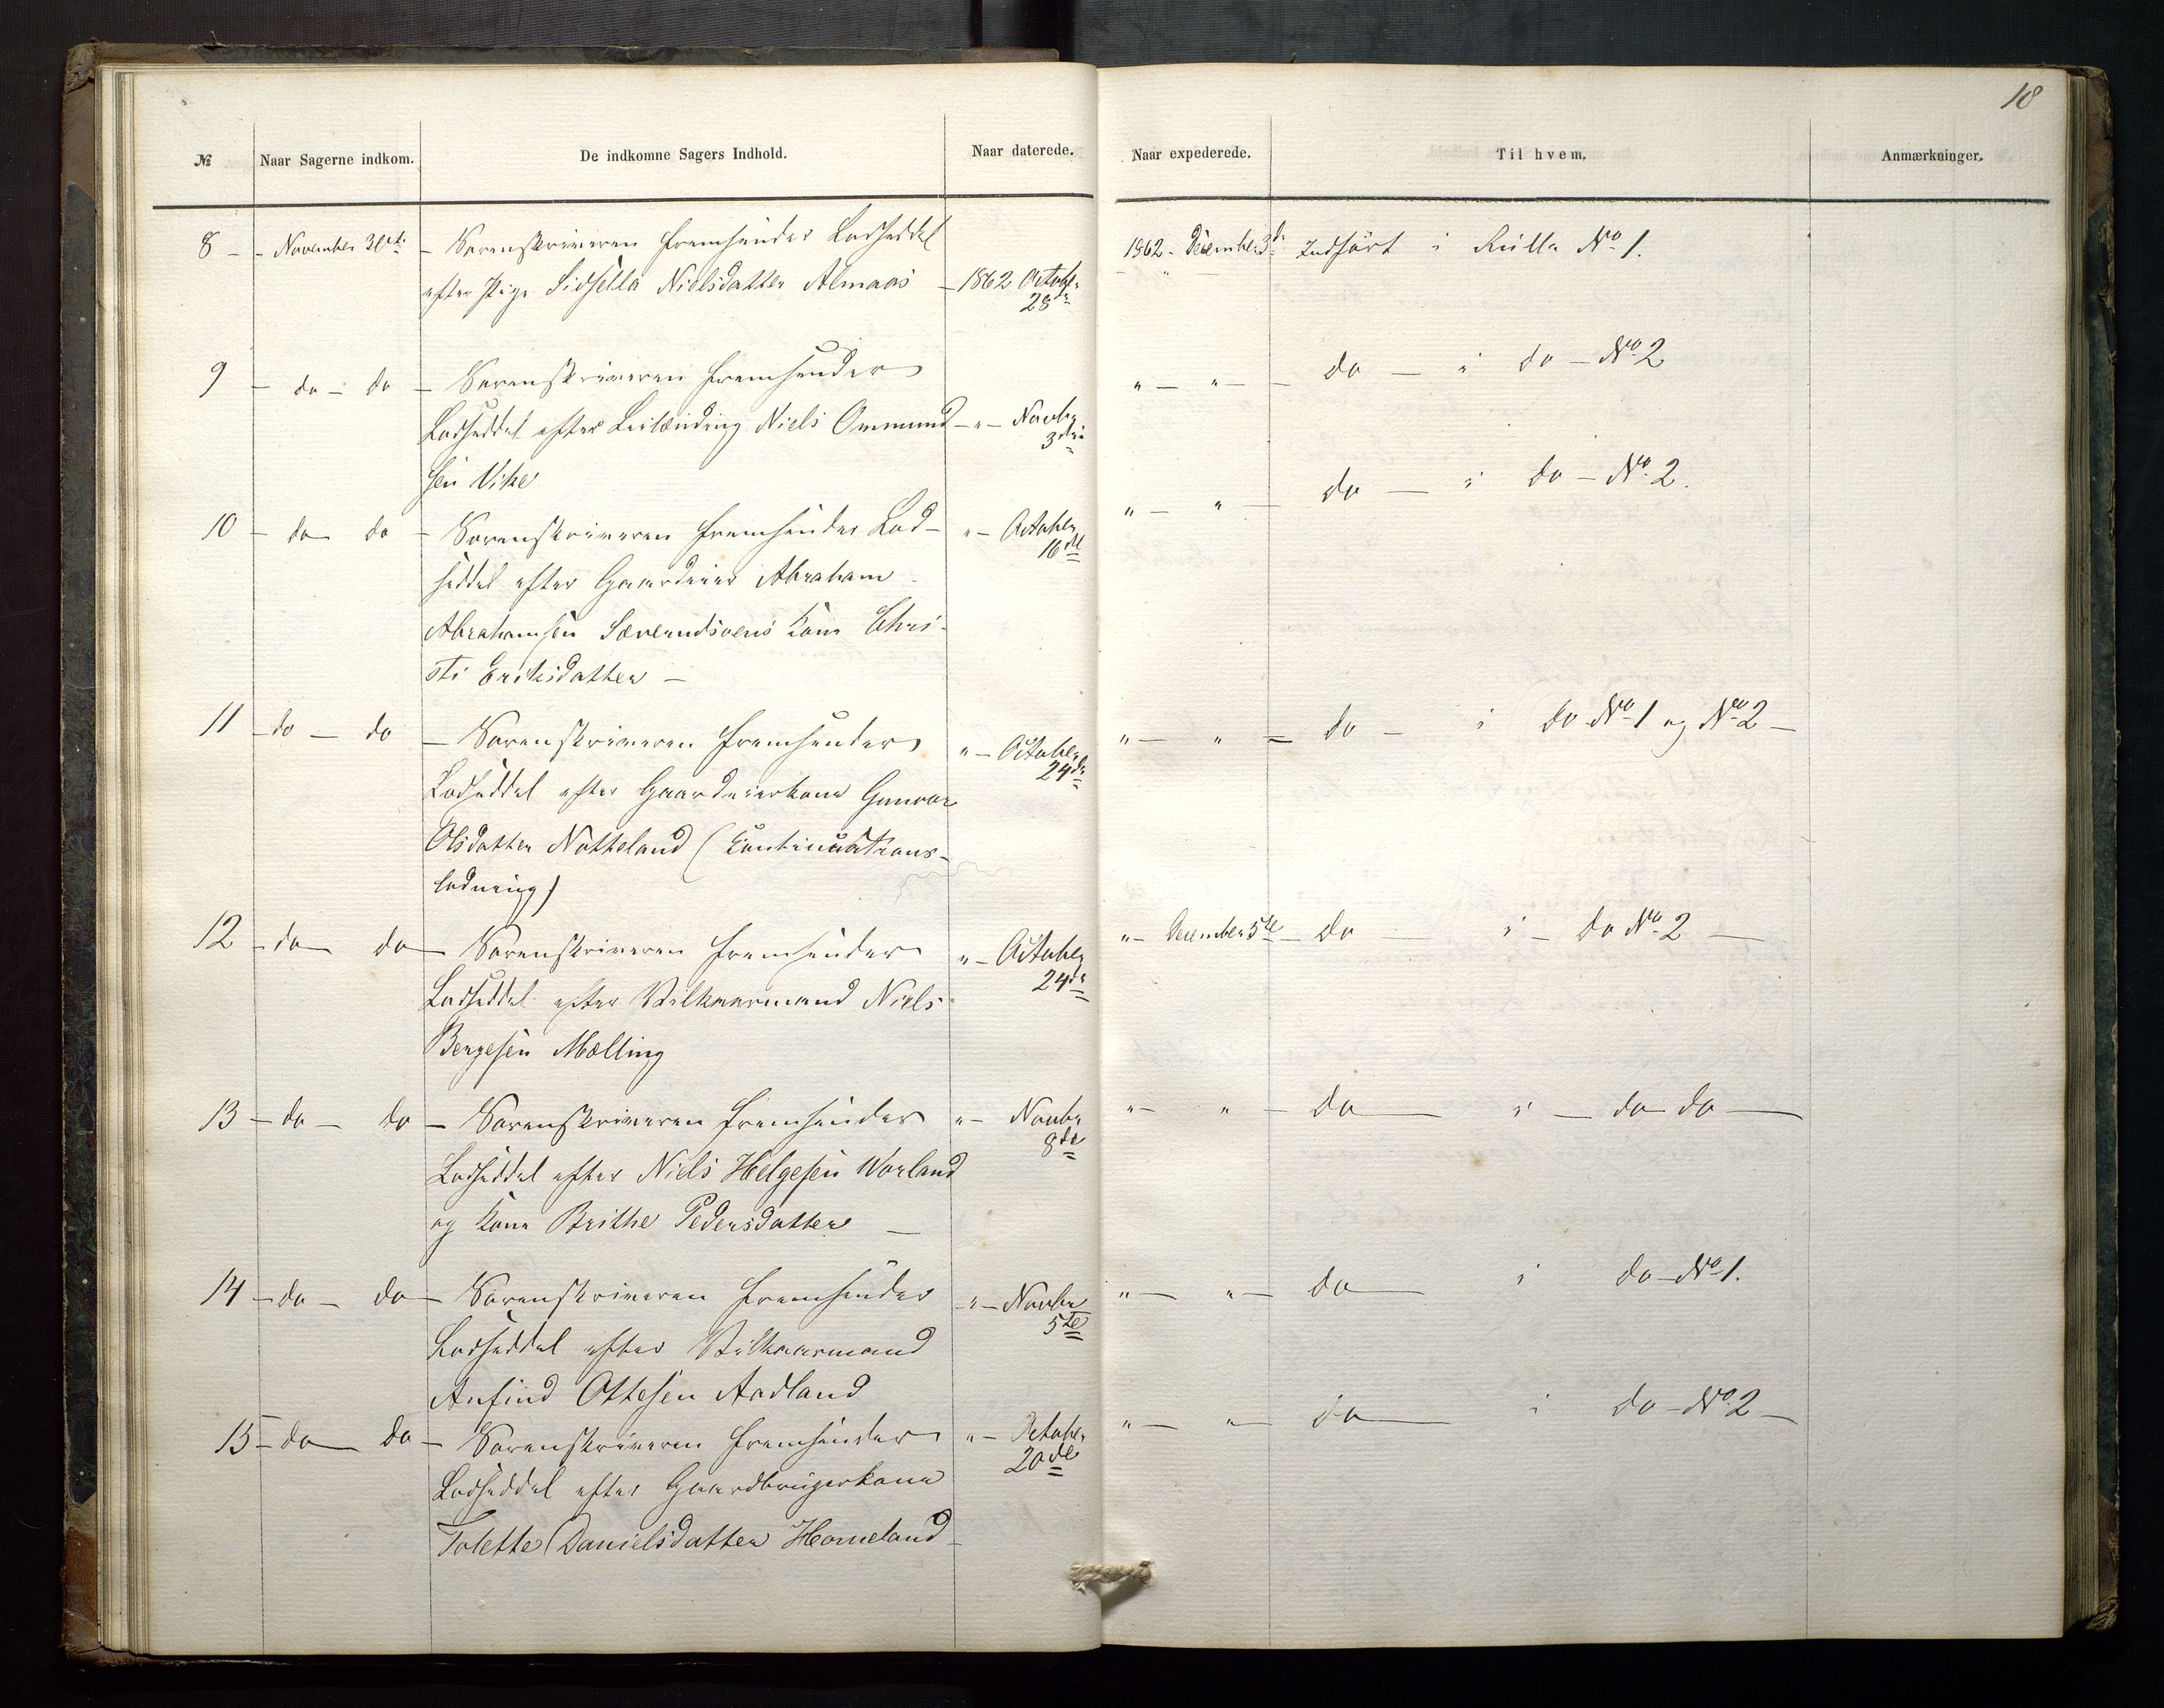 18
№ Naar Sagerne indkom. De indkomne Sagers Indhold. Naar daterede. Naar expederede. Til hvem. Anmærkninger.
8 - - November 30te - Sorenskriveren fremsender Lodseddel 1862 - December 3de Indført i Rulla No 1.
efter Pige Sidsella Nielsdatter Almaas - 1862 October
28de
9 - do - do - Sorenskriveren fremsender " - " - - do - i do - No 2
Lodseddel efter Leilænding Niels Ommund - " - Novbr
3die
sen Vike
10 - do do - Sorenskriveren fremsender Lod- " - October " - " - do - i do - No 2.
16de
seddel efter Gaardeier Abraham
Abrahamsen Kone Chri-
sti Eriksdatter -
11 - do - do - Sorenskriveren fremsender " - October " - " - do - i do No 1 og No 2 -
24de
Lodseddel efter Gaardeierkone Gunvor
Olsdatter Natteland (Continuations-
lodning)
12 - do do - Sorenskriveren fremsender " - October " - December 5te - do i - do No 2 -
24de
Lodseddel efter Vilkaarmand Niels
Bergesen Mælling
13 - do - do - Sorenskriveren fremsender " - Novbr " - " - do - i - do do -
8de
Lodseddel efter Niels Helgesen Worland
og Kone Brithe Pedersdatter -
14 - do - do - Sorenskriveren fremsender - " - Novbr " - " - do - i do - No 1.
5te
Lodseddel efter Vilkaarmand
Anfind Ottesen Aadland
15 - do do - Sorenskriveren fremsender " - October " - " - do - i do - No 2 -
20de
Lodseddel efter Gaardbrugerkone
Tolette Danielsdatter Homeland -